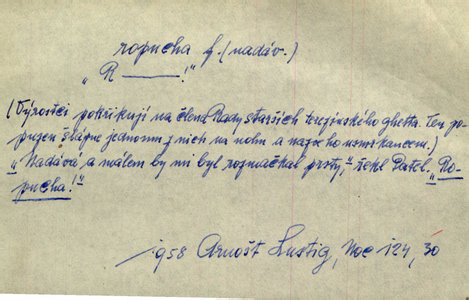 ropucha f. (nadáv.)
„R———!"
(Výrostci pokřikují na člena Rady starších terezínského ghetta. Ten po-
puzen šlápne jednomu z nich na nohu a nazve ho usmrkancem.)
„Nadává, a málem by mi byl rozmačkal prsty," řekl Patel. „Ro-
pucha!"
1958 Arnošt Lustig, Noc 124, 30